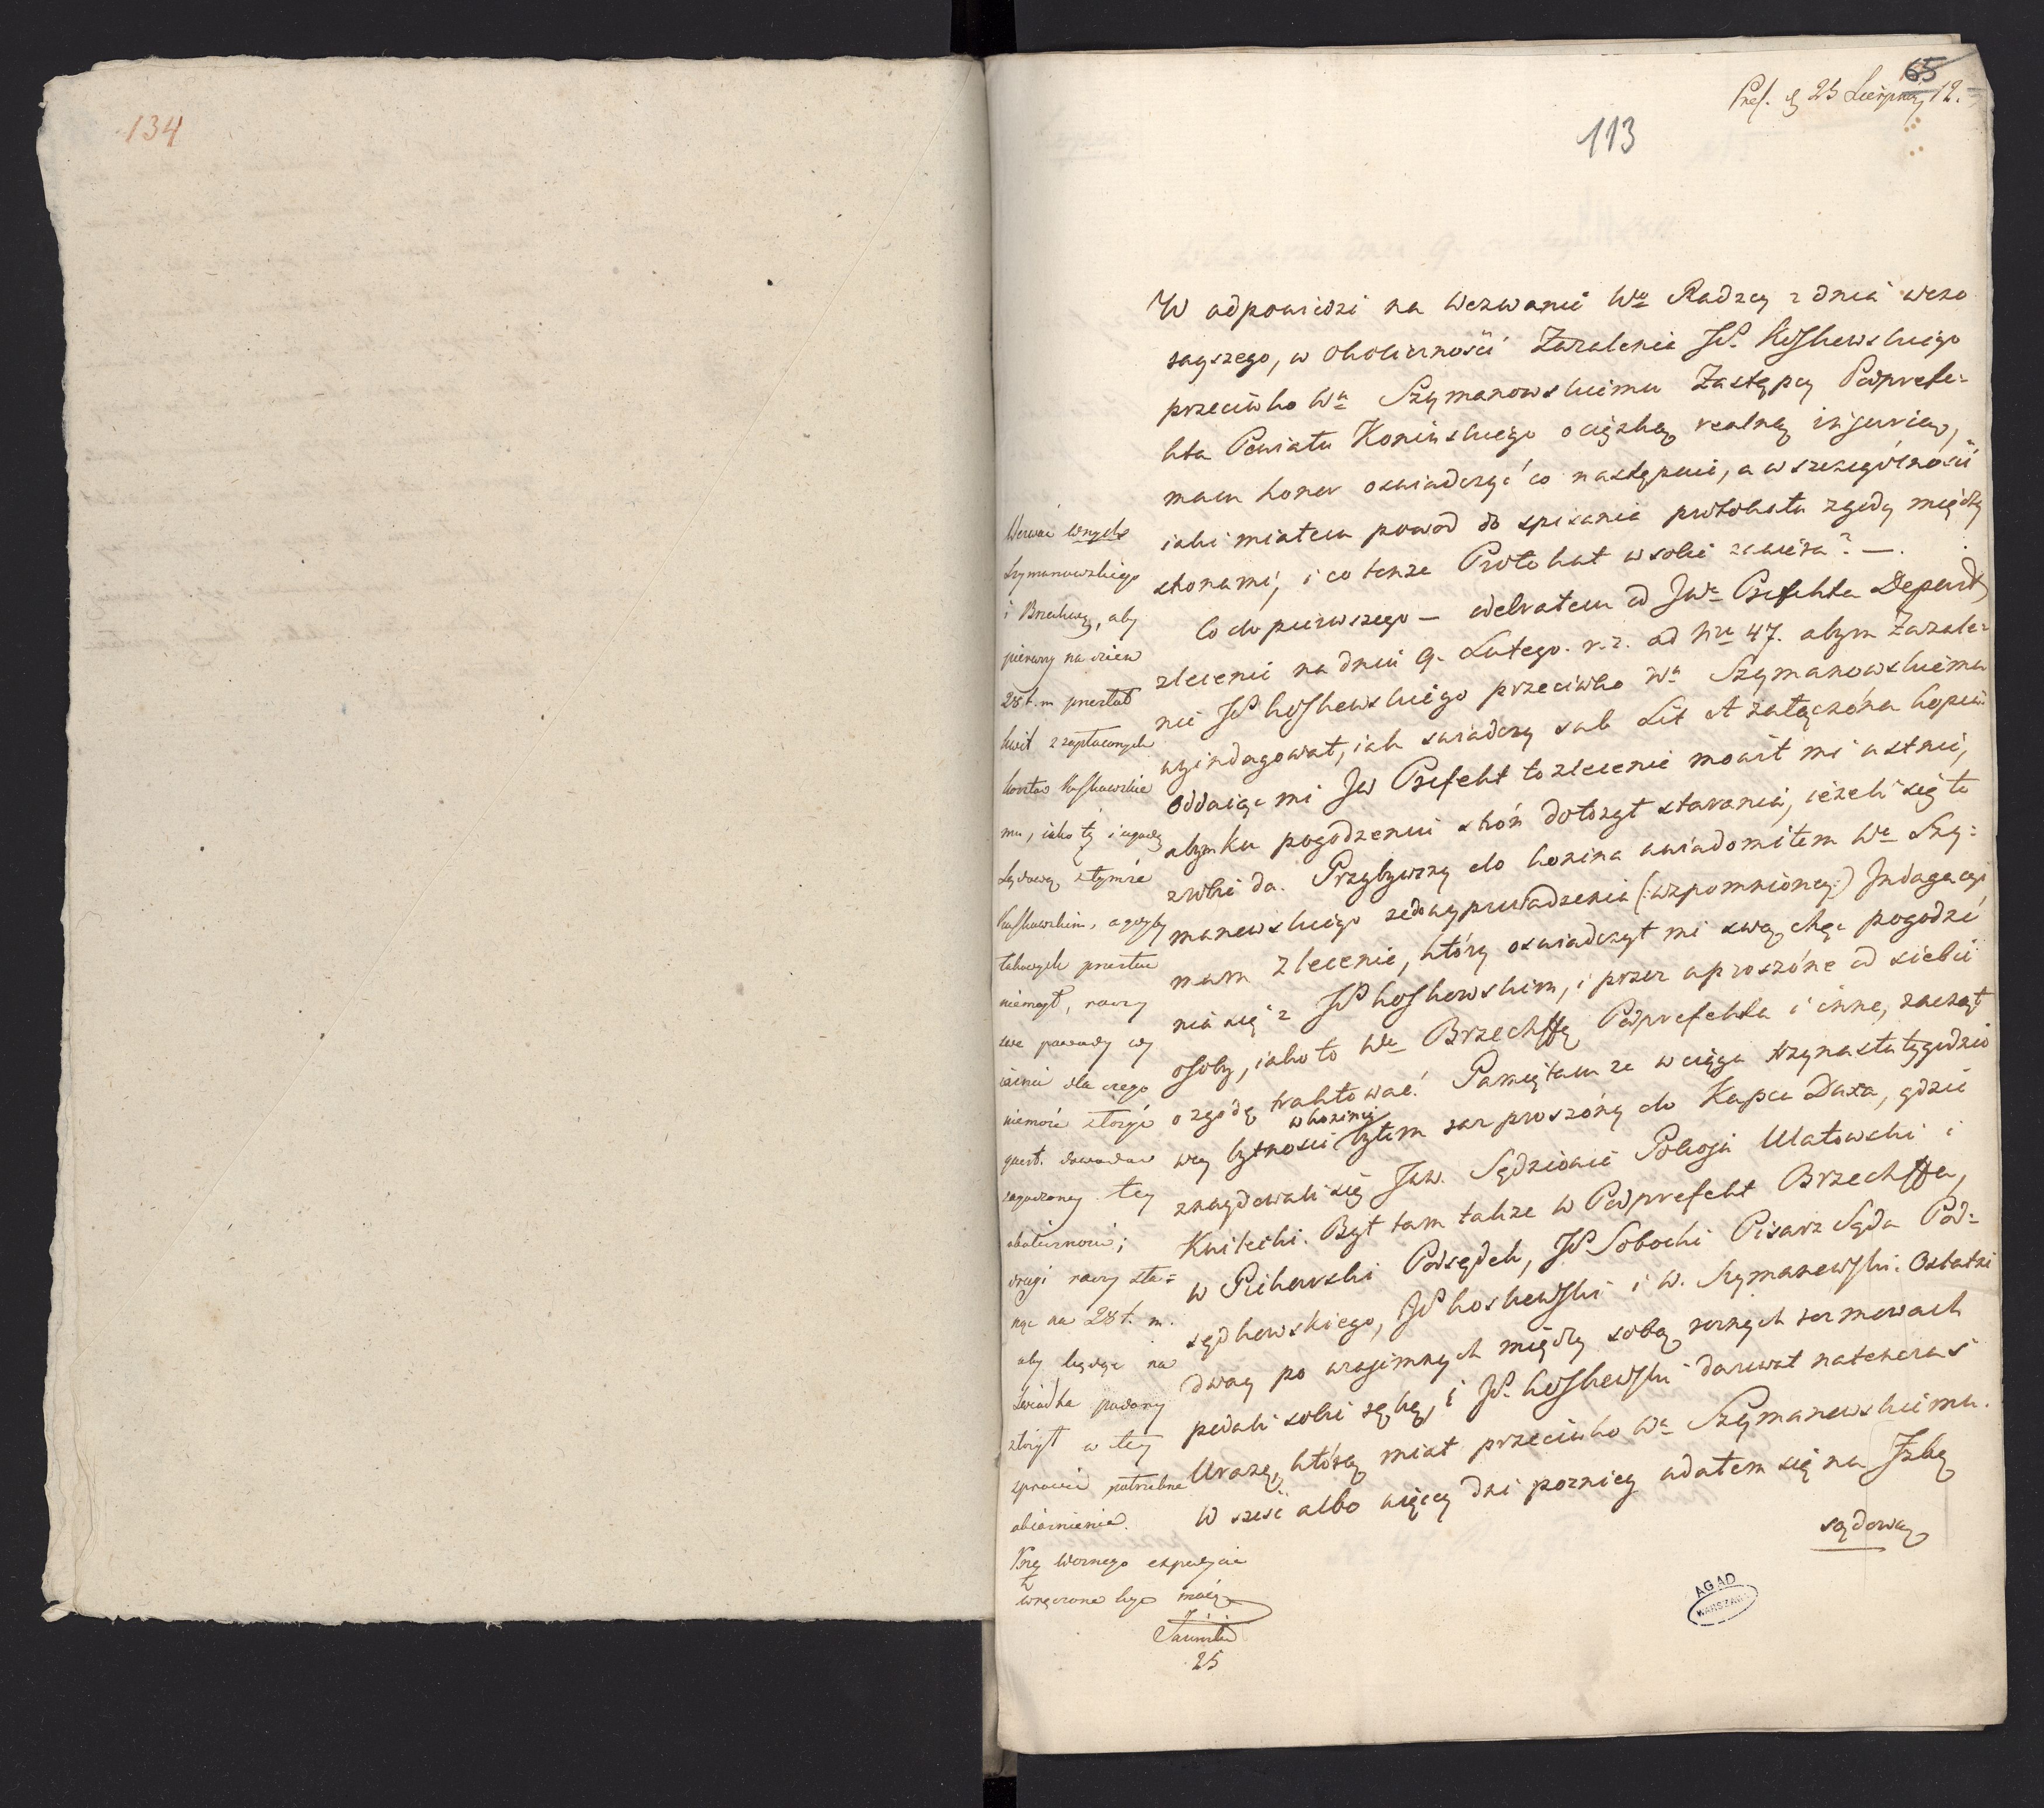 134
65
Pres. d 25 Sierpnia 12.
113
W odpowiedzi na wezwanie Wo Radzcy z dnia wczo
rayszego, w okoliczności Zażalenia JP. Koszkowskiego
przeciwko Wu Szymanowskiemu Zastępcy Podprefe=
kta Powiatu Konińskiego o ciężką realną injurią,
mam honor oswiadczyć co następuie, a w szczególności
iaki miałem powod do spisania protokołu zgody między
stronami, i co tenże Protokuł w sobie zawiera? —.
Co do pierwszego — odebrałem od JWo Prefekta Depart
zlecenie na dniu 9. Lutego. r. z. ad Nru 47. abym Zażale=
nie JP Koszkowskiego przeciwko Wu Szymanowskiemu
wyindagował, iak swiadczy sub Lit A załączona kopia.
Oddaiąc mi JW Prefekt to zlecenie mowił mi ustnie,
abym ku pogodzeniu stron dołożył starania, ieżeli się to
zrobić da. Przybywszy do Konina uwiadomiłem Wo Szy=
manowskiego że do wyprowadzenia (:wzpomnioney:) Indagacyi
mam zlecenie, który oswiadczył mi swą chęć pogodze
nia się z JP Koszkowskim, i przez uproszone od siebie
osoby, iako to Wo Brzechffę Podprefekta i inne, zaczął
o zgodę traktować. Pamiętam że w ciągu trzynasto tygodnio
wey bytności w Koninie byłem zaproszony do Kupca Duxa, gdzie
znaydowali się JWW. Sędziowie Pokoju Ulatowski i
Kwilecki. Był tam także W Podprefekt Brzechffa,
W Piekarski Podsędek, JP Sobocki Pisarz Sądu Pod=
sędkowskiego, JP Koszkowski i W. Szymanowski. Ostatni
dway po wzajemnych między sobą rożnych rozmowach
podali sobie rękę, i JP. Koszkowski darował natenczas
Urazę, którą miał przeciwko Wu Szymanowskiemu.
W sześć albo więcey dni pozniey udałem się na Izbę
sądową
Wezwać Wnych
Szymanowskiego
i Brzechwę, aby
pierwszy na dzień
28 t. m przesłał
kwit z zapłaconych
kosztow Koszkowskie
mu, iako też i ugodę
Sądową z tymże
Koszkowskim, a gdyby
takowych przesłać
niemogł, raczy
swe powody wy
iaśnić dla czego
niemoże złożyć
quest. dowodow
zagodzoney tey
okoliczności;
drugi raczy sta=
nąć na 28 t. m.
aby będąc na
Swiadka podany
złożył w tey
sprawie potrzebne
obiaśnienie.
Przy Woznego expedycie
wręczone być maią
25
AGAD
WARSZAWA